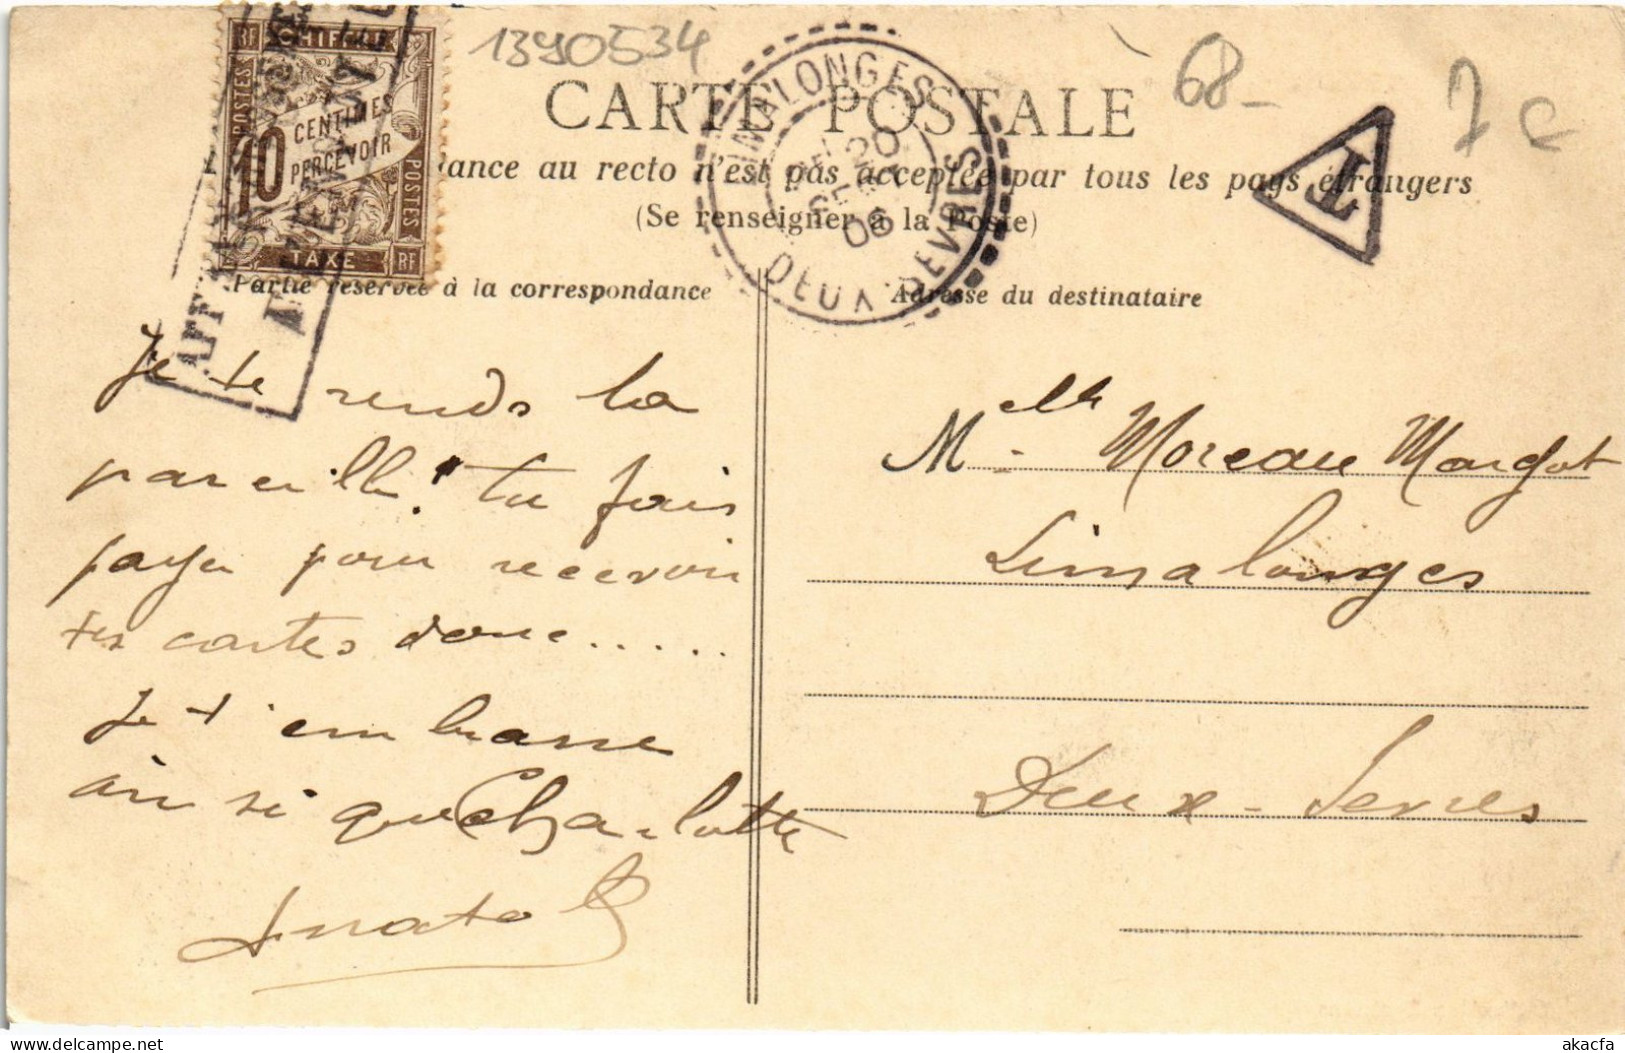 1390534
68-
7 €
CARTE POSTALE
dance au recto n'est pas acceptée par tous les pays étrangers
(Se renseigner à la Poste)
RF CHIFFRE
POSTES
10 CENTIMES
PERCEVOIR
POSTES
TAXE RF
LIMALONGES
20
06
DEUX SEVRES
T
Partie réservée à la correspondance
Je te rends la
pareille! tu fais
payer pour recevoir
tes cartes donc.....
Je t'embrasse
ainsi que Charlotte
Anatol
Adresse du destinataire
Melle Moreau Margot
Limalonges
Deux-Sevres
akacfa